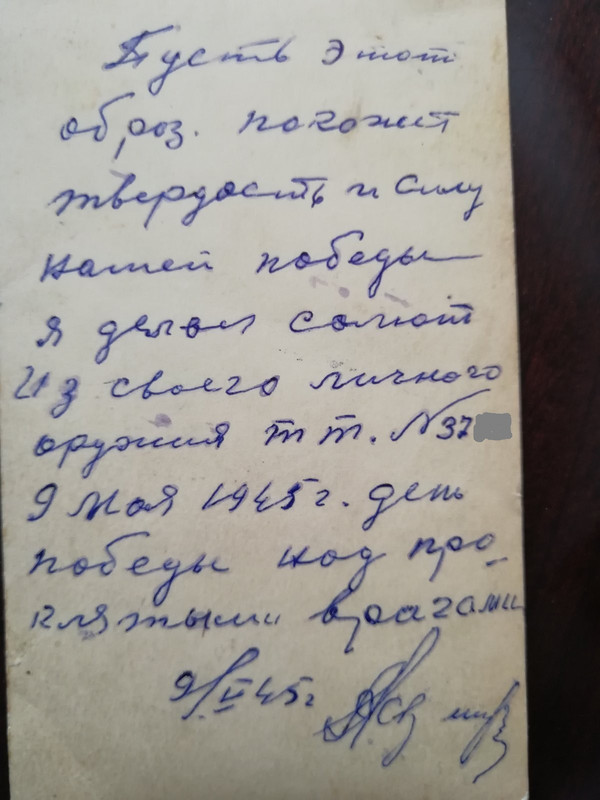 Пусть этот
образ. покажит
твердость и силу
нашей победы
я делаю салют
Из своего личного
оружия т т. N 37
9 мая 1945 г. день
победы над про
клятыми врагами
9/V 45 г